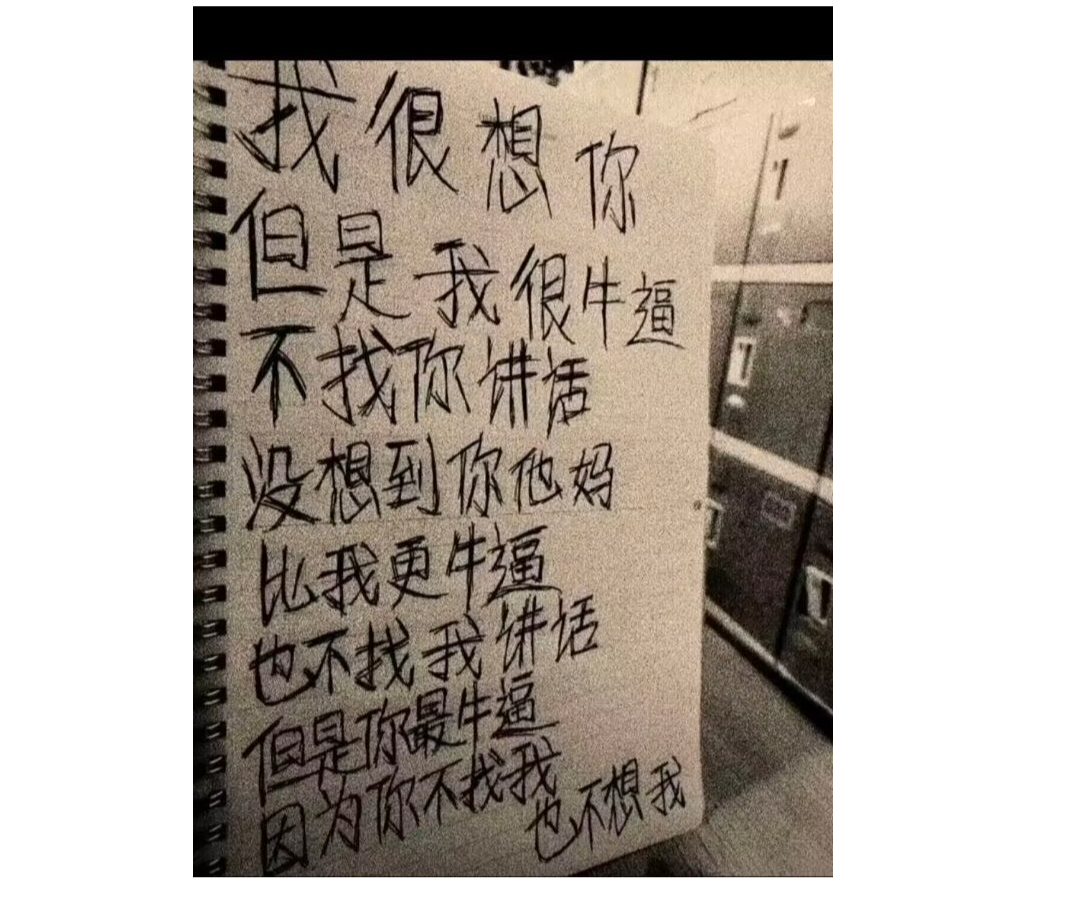 我很想你
但是我很牛逼
不找你讲话
没想到你他妈
比我更牛逼
也不找我讲话
但是你最牛逼
因为你不找我
也不想我